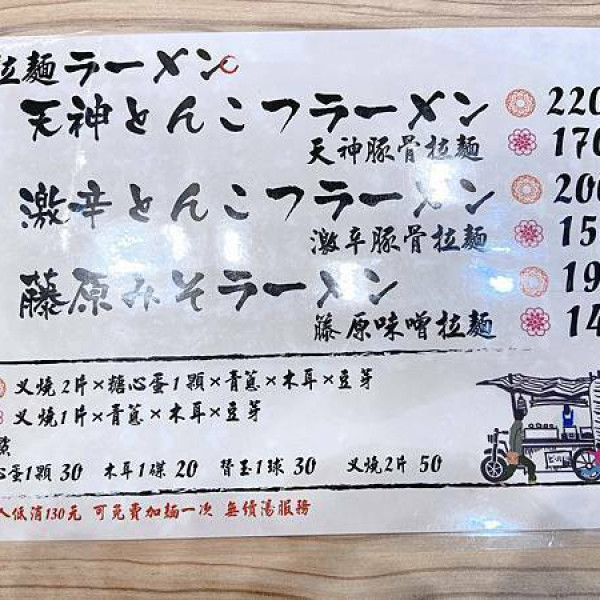 拉麵ラーメン
天神とんこつラーメン 220
天神豚骨拉麵 170
激辛とんこつラーメン 200
激辛豚骨拉麵 15
藤原みそラーメン 19
藤原味噌拉麵 14
叉燒2片×糖心蛋1顆×青蔥×木耳×豆芽
叉燒1片×青蔥×木耳×豆芽
點
心蛋1顆 30 木耳1碟 20 替玉1球 30 叉燒2片 50
人低消130元 可免費加麵一次 無續湯服務